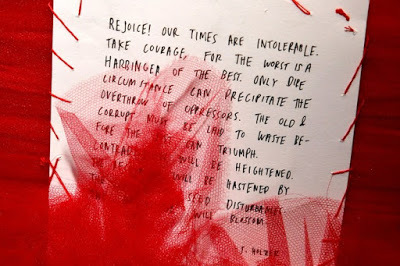 REJOICE! OUR TIMES ARE INTOLERABLE.
TAKE COURAGE, FOR THE WORST IS A
HARBINGER OF THE BEST. ONLY DIRE
CIRCUMSTANCE CAN PRECIPITATE THE
OVERTHROW OF OPPRESSORS. THE OLD &
CORRUPT MUST BE LAID TO WASTE BE-
FORE THE CAN TRIUMPH.
WILL BE HEIGHTENED.
THE WILL BE HASTENED BY
THE SEED DISTURBANCE
WILL BLOSSOM.
J. HOLZER